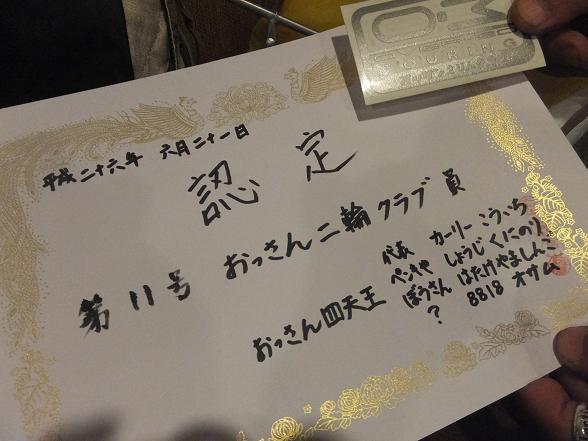 平成二十六年 六月二十一日
認定
第11号 おっさん二輪クラブ員
おっさん四天王
代表 カーリー こういち
ペンキや しょうじ くにのり
ぼうさん はたけやま しんご
? 8818 オサム
TOURING